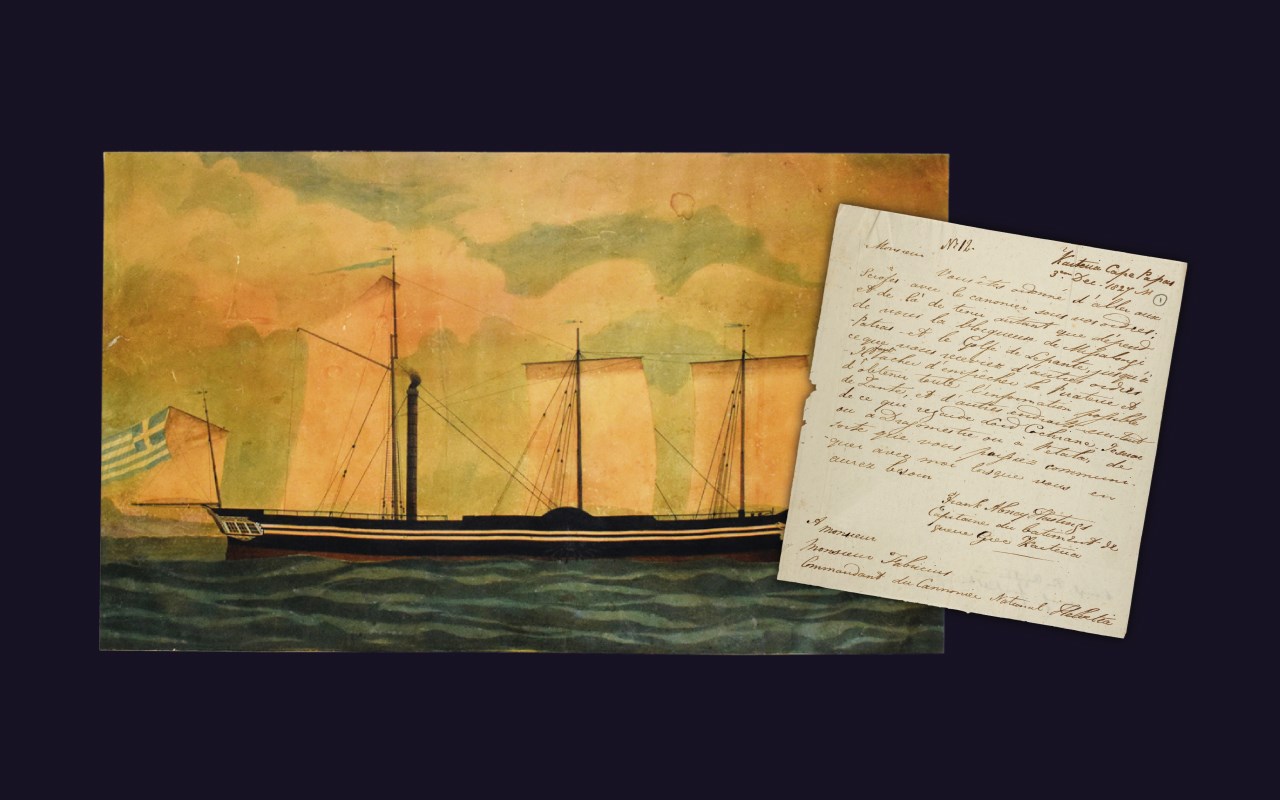 No. 12.
Karteria Cape Papas
3me Dec. 1827
1
Monsieur
Vous êtes ordonné d'aller aux
Scrofes avec le canonier sous vos ordres;
et de là de tenir autant que dépend
de vous le blocquness de Missalongi
Patras et le Golfe de Lepante, jusqu'à
ceque vous receviez d'autres ordres
Tacher d'empecher la Piraterie et
d'obtenir toute l'information possible
de Zante, et d'autres endroits surtout
de ce que regarde Lord Cochrane,
ou à Dragomestre ou à Petala, de
sorte que vous puissiez communi-
quer avec moi lorsque vous en
aurez besoin
Frank Abney Hastings
Capitaine du batiment de
guerre Grec Karteria
A monsieur
Monsieur Fabricius
Commandant du Cannonier National